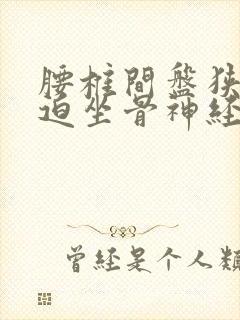 腰椎間盤狹
迫坐骨神経
曾经是个人類